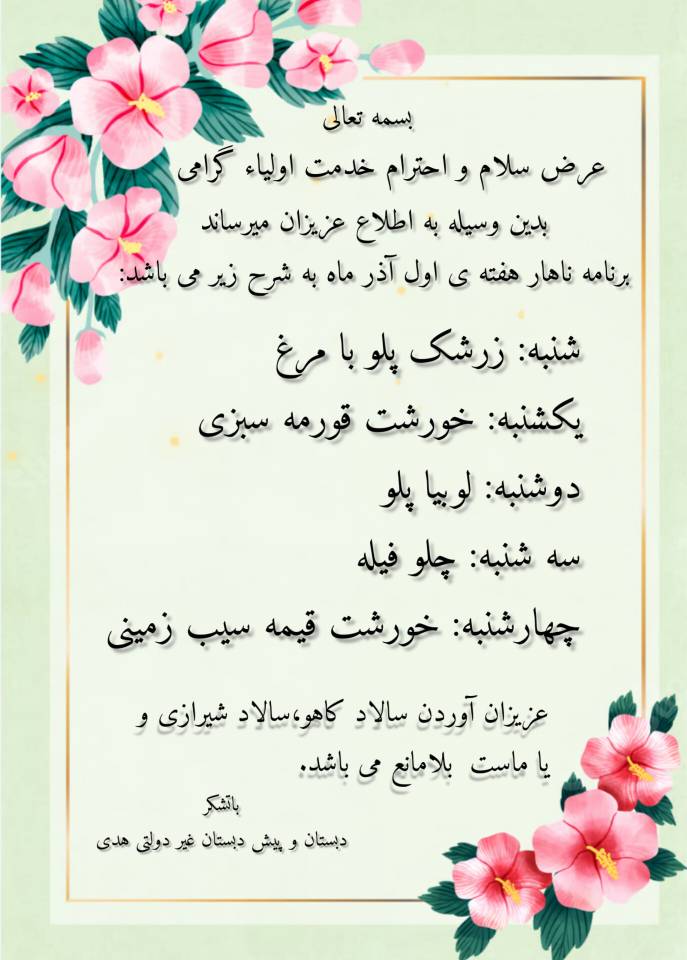 بسمه تعالی
عرض سلام و احترام خدمت اولیاء گرامی
بدین وسیله به اطلاع عزیزان میرساند
برنامه ناهار هفته ی اول آذر ماه به شرح زیر می باشد:
شنبه: زرشک پلو با مرغ
یکشنبه: خورشت قورمه سبزی
دوشنبه: لوبیا پلو
سه شنبه: چلو فیله
چهارشنبه: خورشت قیمه سیب زمینی
عزیزان آوردن سالاد کاهو،سالاد شیرازی و
یا ماست بلامانع می باشد.
باتشکر
دبستان و پیش دبستان غیر دولتی هدی